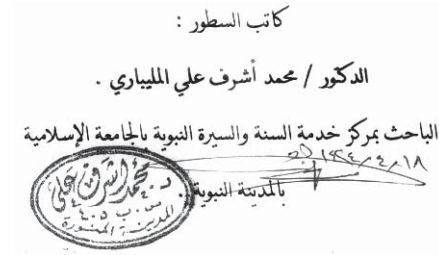 كاتب السطور :
الدكتور / محمد أشرف علي المليباري .
الباحث بمركز خدمة السنة والسيرة النبوية بالجامعة الإسلامية
١٨/٤/١٤٢٤
بالمدينة النبوية .
د. محمد أشرف علي
ص. ب ٤٠٥
المدينة المنورة